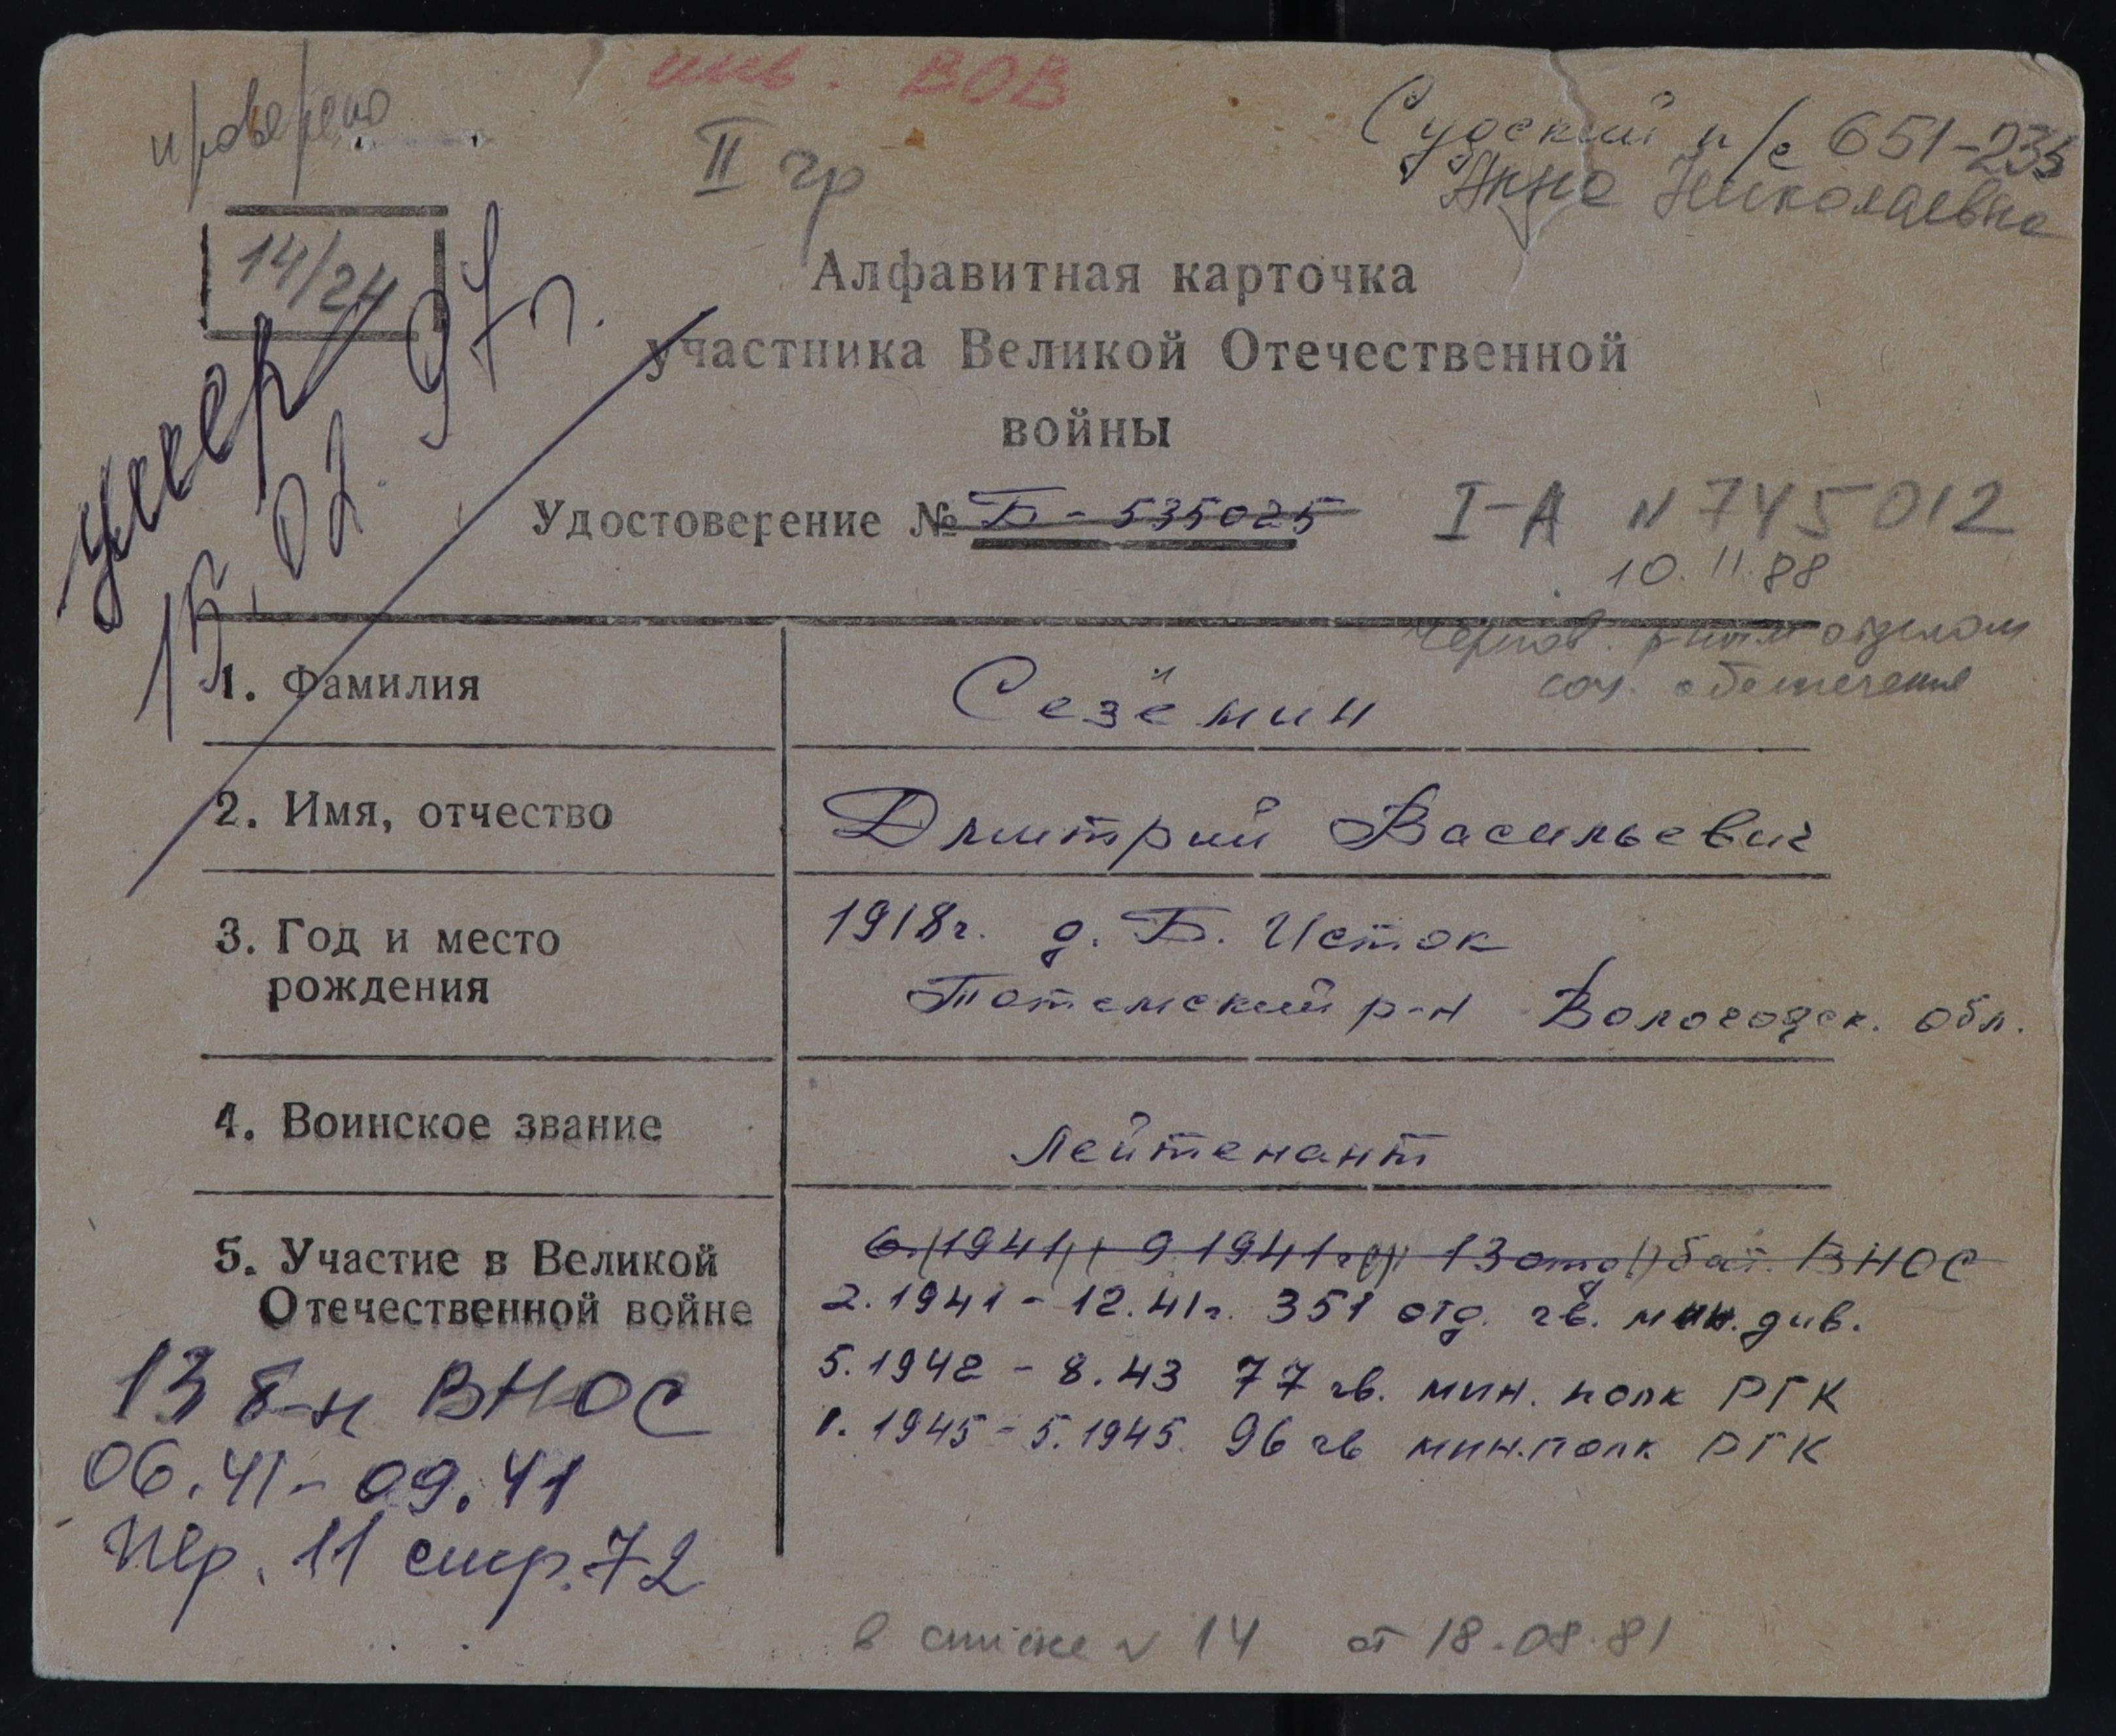 проверено
инв. ВОВ
II гр
Судский п/с 651-235
Анна Николаевна
14/24
умер
15.02.97г.
Алфавитная карточка
участника Великой Отечественной
войны
Удостоверение № Б-535025
I-А N 745012
10.11.88
отделом
соц. обеспечения
1. Фамилия
Сезёмин
2. Имя, отчество
Дмитрий Васильевич
3. Год и место
рождения
1918г. д. Б. Исток
Тотемский р-н Вологодск. обл.
4. Воинское звание
Лейтенант
5. Участие в Великой
Отечественной войне
6.1941 9.1941г 13 отд бат. ВНОС
2.1941 - 12.41г. 351 отд. гв. мин. див.
5.1942 - 8.43 77 гв. мин. полк РГК
1.1945 - 5.1945. 96 гв мин.полк РГК
13 б-н ВНОС
06.41 - 09.41
пер. 11 стр. 72
в списке N 14 от 18.08.81